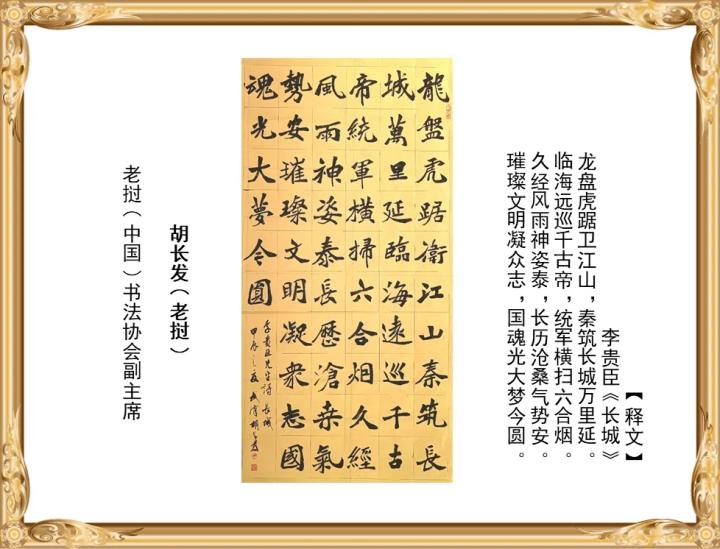 【释文】
李贵臣《长城》
龙盘虎踞卫江山，秦筑长城万里延。
临海远巡千古帝，统军横扫六合烟。
久经风雨神姿泰，长历沧桑气势安。
璀璨文明凝众志，国魂光大梦今圆。
龍盤虎踞衛江山秦筑長
城萬里延臨海遠巡千古
帝統軍橫掃六合烟久經
風雨神姿泰長歷滄桑氣
勢安璀璨文明凝衆志國
魂光大夢今圓
李貴臣先生詩長城
甲辰之夏
胡长发（老挝）
老挝（中国）书法协会副主席